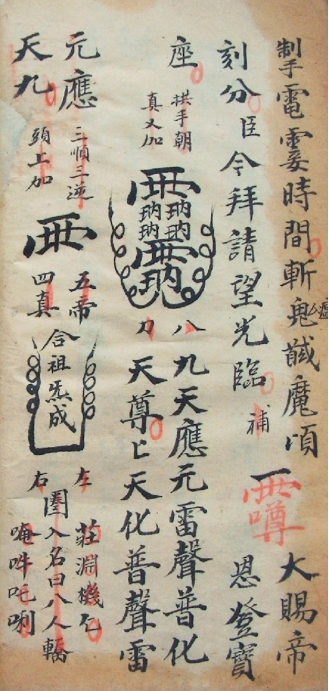 制手電霎時間斬鬼馘魔頃
大賜帝
刻分臣今拜請望光臨
補
恩登寶
座
拱手朝
真又加
八九天應元雷聲普化
刀天尊
天化普聲雷
元應
三順三逆
五帝
左
莊淵機乙
天九
頭上加
四真
合祖炁成
右
圈入名曰八人輪
唵吽吒唎